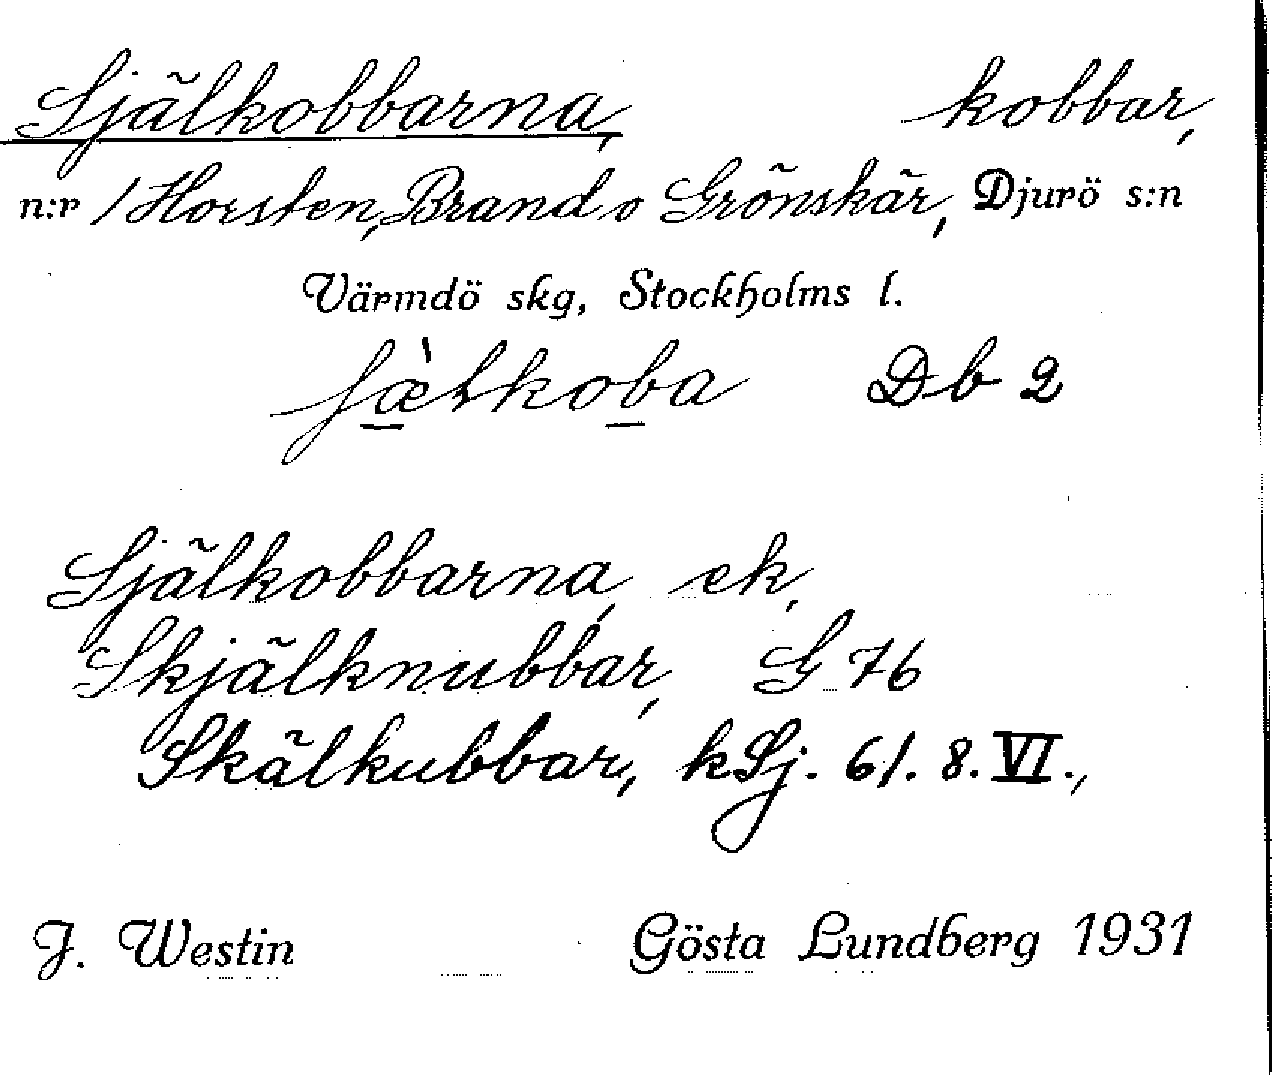 Själkobbarna, kobbar,
n:r 1 Horsten, Brand o Grönskär, Djurö s:n
Värmdö skg, Stockholms l.
Db 2
Själkobbarna, ek,
Skjälknubbar, G 76
Skälkubbar, kSj. 61. 8. VI.,
J. Westin Gösta Lundberg 1931